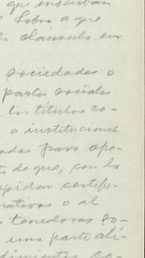 que inscriban
Libro a que
clausula en
sociedades o
partes sociales
los títulos co-
a instituciones
das para opo-
de que, con lo
expidan certifi-
rativos o al
tenedores so-
una parte alí-